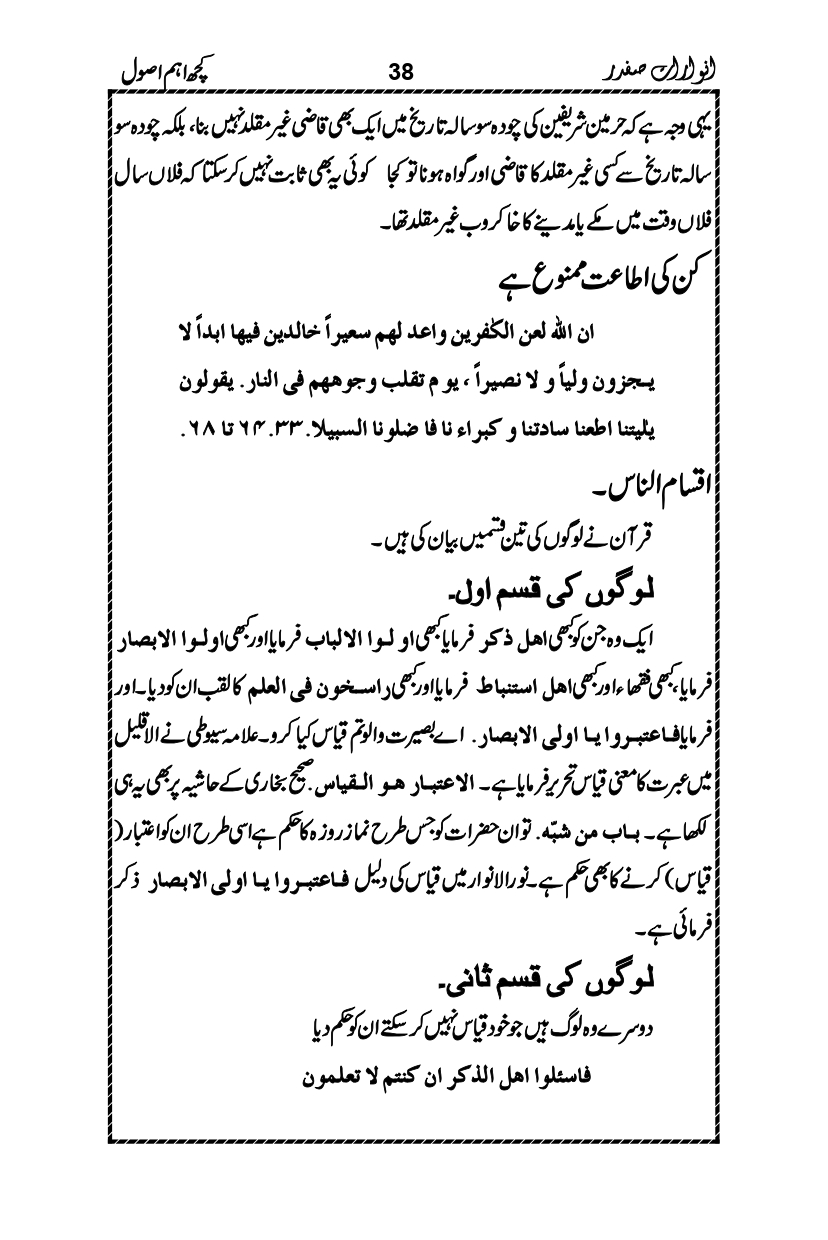 انوارات صفدر 38 کچھ اہم اصول
یہی وجہ ہے کہ حرمین شریفین کی چودہ سو سالہ تاریخ میں ایک بھی قاضی غیر مقلد نہیں بنا، بلکہ چودہ سو
سالہ تاریخ سے کسی غیر مقلد کا قاضی اور گواہ ہونا تو کجا کوئی یہ بھی ثابت نہیں کر سکتا کہ فلاں سال
فلاں وقت میں مکے یا مدینے کا خاکروب غیر مقلد تھا۔
کن کی اطاعت ممنوع ہے
ان اللہ لعن الکٰفرین واعد لھم سعیراً خالدین فیھا ابداً لا
یـجزون ولیاً و لا نصیراً ، یو م تقلب وجوھھم فی النار. یقولون
یلیتنا اطعنا سادتنا و کبراء نا فا ضلونا السبیلا. ۳۳.۶۴ تا ۶۸.
اقسام الناس۔
قرآن نے لوگوں کی تین قسمیں بیان کی ہیں۔
لوگوں کی قسم اول۔
ایک وہ جن کو کبھی اھل ذکر فرمایا کبھی او لوا الالباب فرمایا اور کبھی اولوا الابصار
فرمایا، کبھی فقھاء اور کبھی اھل استنباط فرمایا اور کبھی راسخون فی العلم کا لقب ان کو دیا۔ اور
فرمایا فاعتبروا یا اولی الابصار. اے بصیرت والو تم قیاس کیا کرو۔ علامہ سیوطی نے الاقلیل
میں عبرت کا معنی قیاس تحریر فرمایا ہے۔ الاعتبار ھو القیاس. صحیح بخاری کے حاشیہ پر بھی یہ ہی
لکھا ہے۔ باب من شبّہ. تو ان حضرات کو جس طرح نماز روزہ کا حکم ہے اسی طرح ان کو اعتبار (
قیاس) کرنے کا بھی حکم ہے۔ نور الانوار میں قیاس کی دلیل فاعتبروا یا اولی الابصار ذکر
فرمائی ہے۔
لوگوں کی قسم ثانی۔
دوسرے وہ لوگ ہیں جو خود قیاس نہیں کر سکتے ان کو حکم دیا
فاسئلوا اھل الذکر ان کنتم لا تعلمون